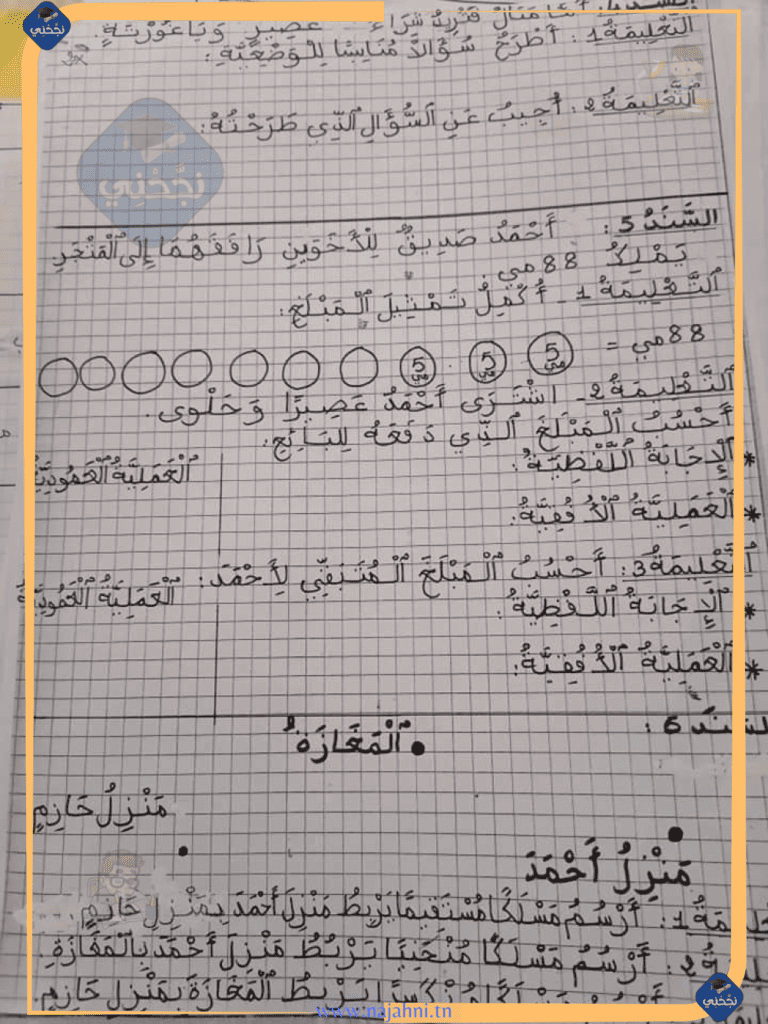 السَّنَدُ 4: أَمَّا مَنَالُ فَتُرِيدُ شِرَاءَ عَصِيرٍ وَيَاغُورْتَةٍ.
التَّعْلِيمَةُ 1: أَطْرَحُ سُؤَالًا مُنَاسِبًا لِلْوَضْعِيَّةِ:
التَّعْلِيمَةُ 2: أُجِيبُ عَنِ السُّؤَالِ الَّذِي طَرَحْتُهُ:
السَّنَدُ 5: أَحْمَدُ صَدِيقٌ لِلْأَخَوَيْنِ رَافَقَهُمَا إِلَى الْمَتْجَرِ
يَمْلِكُ 88 مي.
التَّعْلِيمَةُ 1 - أُكْمِلُ تَمْثِيلَ الْمَبْلَغِ:
88 مي = 5 مي 5 مي 5 مي
التَّعْلِيمَةُ 2 - اشْتَرَى أَحْمَدُ عَصِيرًا وَحَلْوَى.
أَحْسُبُ الْمَبْلَغَ الَّذِي دَفَعَهُ لِلْبَائِعِ:
* الْإِجَابَةُ اللَّفْظِيَّةُ: الْعَمَلِيَّةُ الْعَمُودِيَّةُ
* الْعَمَلِيَّةُ الْأُفُقِيَّةُ:
التَّعْلِيمَةُ 3: أَحْسُبُ الْمَبْلَغَ الْمُتَبَقِّي لِأَحْمَدَ: الْعَمَلِيَّةُ الْعَمُودِيَّةُ
* الْإِجَابَةُ اللَّفْظِيَّةُ:
* الْعَمَلِيَّةُ الْأُفُقِيَّةُ:
السَّنَدُ 6:
الْمَغَازَةُ
مَنْزِلُ حَازِمٍ
مَنْزِلُ أَحْمَدَ
1: أَرْسُمُ مَسْلَكًا مُسْتَقِيمًا يَرْبِطُ مَنْزِلَ أَحْمَدَ بِمَنْزِلِ حَازِمٍ.
2: أَرْسُمُ مَسْلَكًا مُنْحَنِيًا يَرْبُطُ مَنْزِلَ أَحْمَدَ بِالْمَغَازَةِ.
أَرْسُمُ مَسْلَكًا مُنْكَسِرًا يَرْبُطُ الْمَغَازَةَ بِمَنْزِلِ حَازِمٍ.
نجّحني
www.najahni.tn